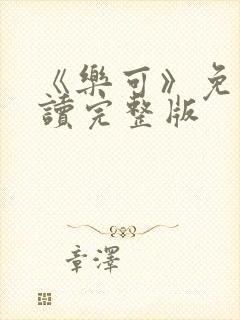 《樂可》免
讀完整版
章澤